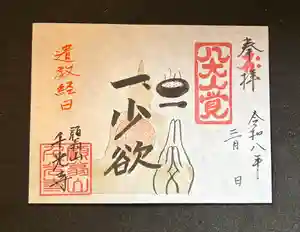 奉拝
令和八年
二月 日
八大人覚
一、少欲
遺教経日
千光寺